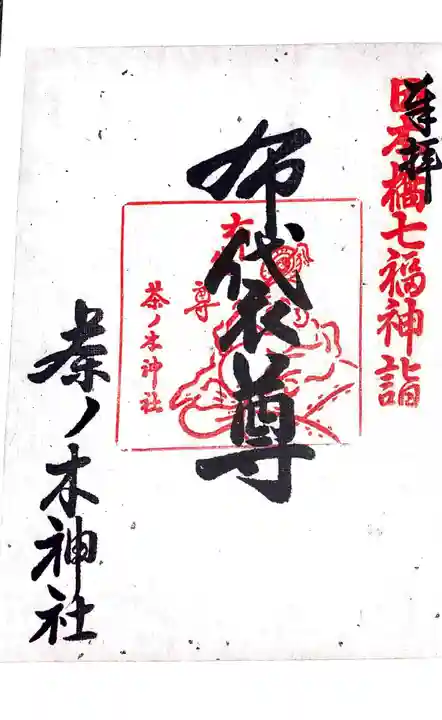 奉拝
日本橋七福神詣
布袋尊
尊
茶ノ木神社
茶ノ木神社